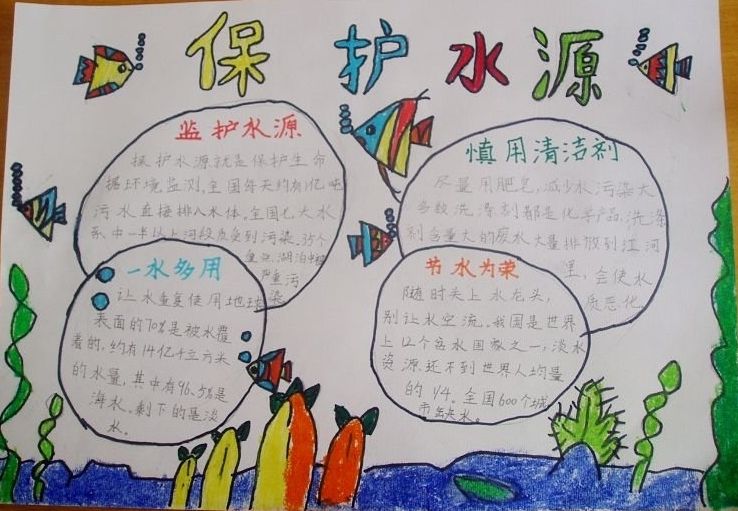 保护水源
监护水源
保护水源就是保护生命
据环境监测,全国每天约有1亿吨
污水直接排入水体。全国七大水
系中一半以上河段水质受到污染。35个
重点湖泊中被
严重污
染
慎用清洁剂
尽量用肥皂,减少水污染大
多数洗涤剂都是化学产品,洗涤
剂含量大的废水大量排放到江河
里,会使水
质恶化
一水多用
让水重复使用地球
表面的70%是被水覆
着的,约有14亿4立方米
的水量,其中有96.5%是
海水。剩下的是淡
水。
节水为荣
随时关上水龙头,
别让水空流。我国是世界
上12个贫水国家之一,淡水
资源还不到世界人均量
的1/4。全国600个城
市缺水。